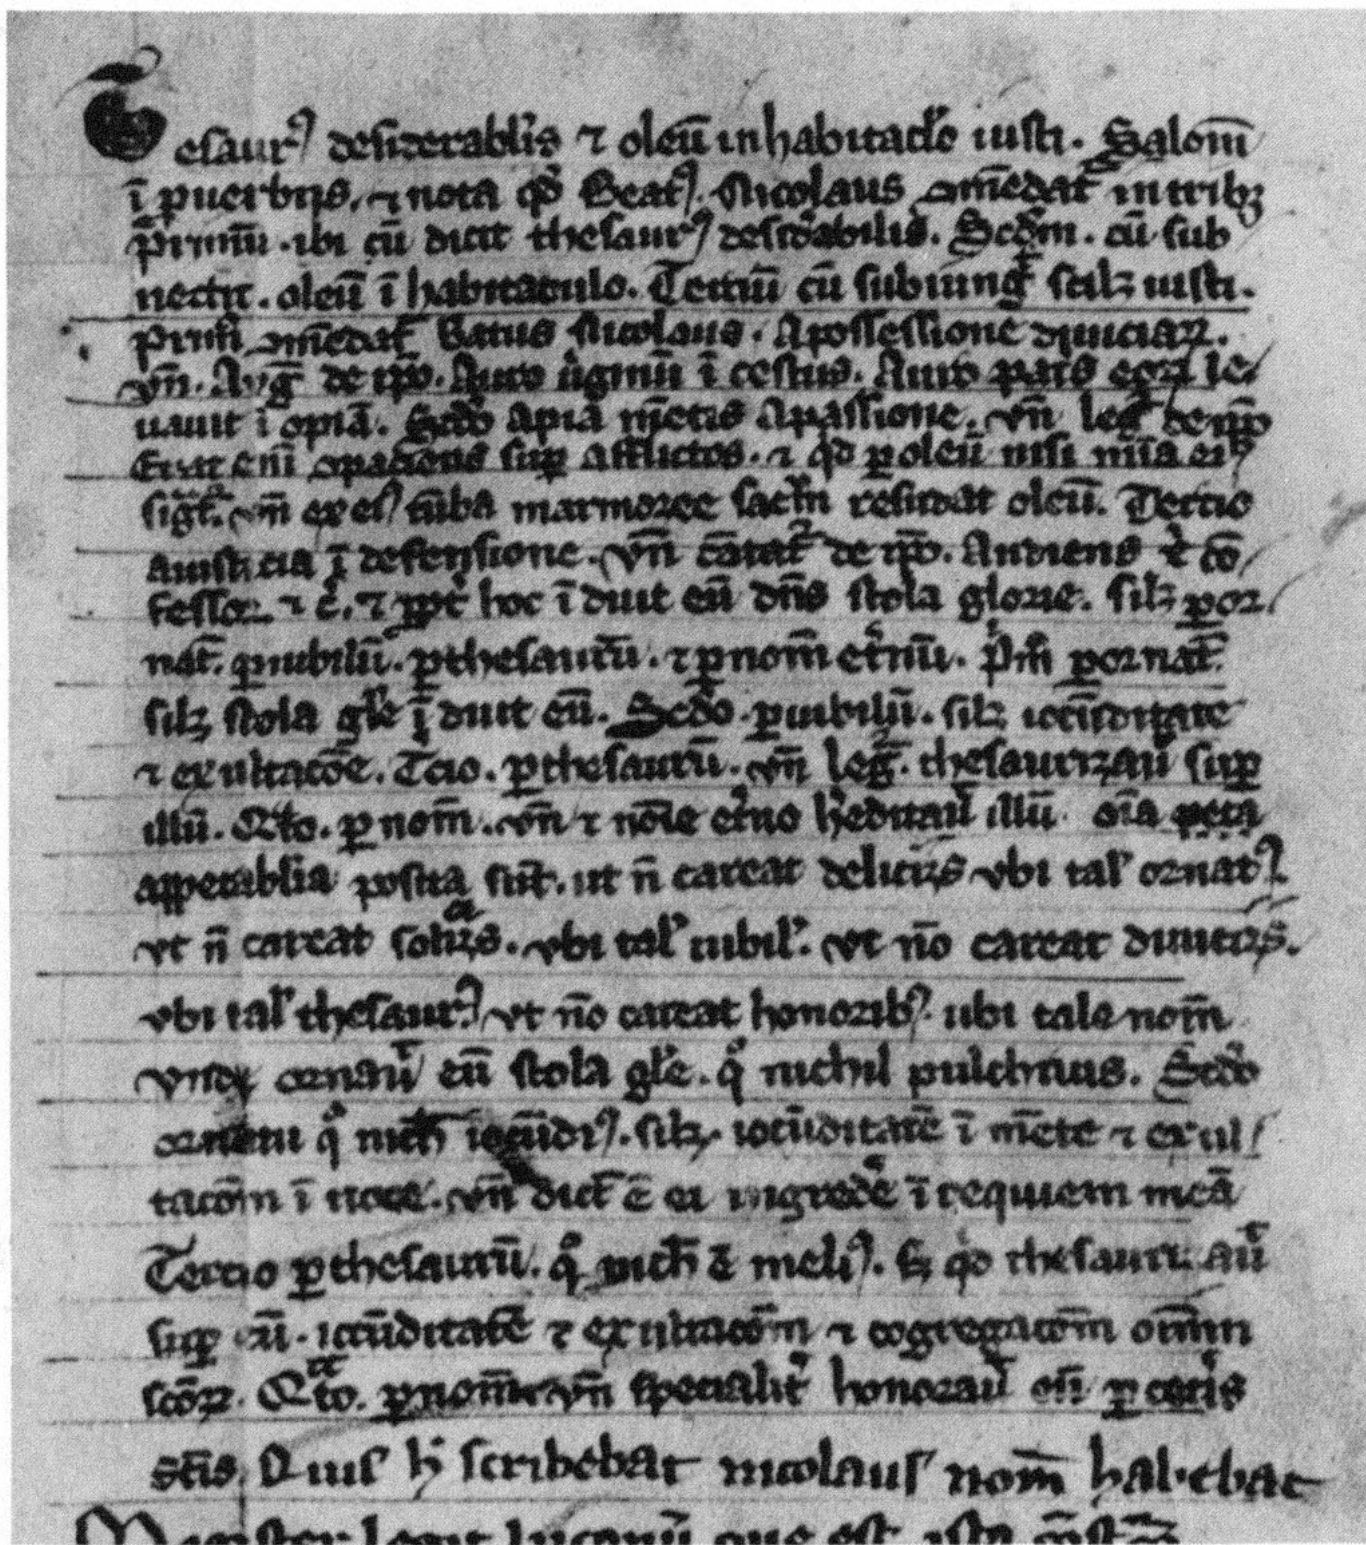 Tesaurꝰ desiderabl'is ⁊ oleū in habitacl'o iusti. Salom̄
ī ꝓuerbijs. ⁊ nota qd̓ Beatꝰ. Nicolaus ꝯm̄edat᷑ in tribꝫ
P̓rimū. ibi cū dicit thesaurꝰ desid̓abilis. Scd̓m. cū sub
nectit. oleū ī habitaculo. Tertiū cū subiung᷑ scilꝫ iusti.
Prim̄ ꝯm̄edat᷑ Batus Nicolaus. A possessione diuiciaꝝ.
vn̄. Auḡ de ip̄o. Auro u̓ginū ī cestus. Auro pat̓s eoꝝ le
uauit īopiā. Scd̓o a pia m̄etis apassione. vn̄ leg᷑ de ip̄o
Erat eni ꝯpaciens suꝑ afflictos. ⁊ qd̓ ꝑ oleū nisi mīa eiꝰ
sig᷑t. vn̄ ex eiꝰ tūba marmoree sacm̄ resudat oleū. Tertio
a iusticia ī defensione. vn̄ cātat᷑ de ip̄o. Audiens xp̄i cō
fessoꝝ ⁊ c̓. ⁊ ꝓpt̓ hoc īduit eū dn̄s stola glorie. silꝫ ꝑ or
nat᷑. ꝑ iubilū. ꝑ thesaurū. ⁊ ꝑ nom̄ et̓nū. P̓m̄ ꝑ ornat᷑
silꝫ stola gl'e īduit eū. Scd̓o. ꝑ iubilū. silꝫ iocūditate
⁊ exultacōe. Tcio. ꝑ thesaurū. vn̄ leg᷑. thesaurizau̓ suꝑ
illū. Qr̄to. ꝑ nom̄. vn̄ ⁊ noīe et̓no h̓editau̓ illū oīa
appetablia posita sūt. ut n̄ careat delicijs vbi tal' ornatꝰ.
vt n̄ careat solacijs. vbi tal' iubil'. vt nō careat diuicijs.
vbi tal' thesaurꝰ vt nō careat honoribꝰ. ubi tale nom̄
Vndꝫ ornau̓ eū stola gl'e. qͦ nichil pulchrius. Scd̓o
ornatu qͦ nich̄ iocūdiꝰ. silꝫ. iocūditatē ī m̄ete ⁊ exul
tacōm ī uoce. vn̄ dict᷑ ē ei ingred̓e ī requiem meā
Tertio ꝑ thesaurū. qͦ nich̄ ē meliꝰ. sꝫ qd̓ thesaurizau̓
suꝑ eū. iocūditatē ⁊ exultacōm ⁊ cōgregacōm om̄in
scōꝝ. Qr̄to. ꝑ nom̄ vn̄ specialit̓ honorau̓ eū p̄ cet̓is
sc̄tis. Qius h̄ scribebat nicolaus nom̄ habebat
Magister legit lucanū que est ista